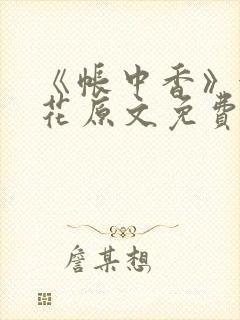 《帐中香》
花原文免费
詹某想